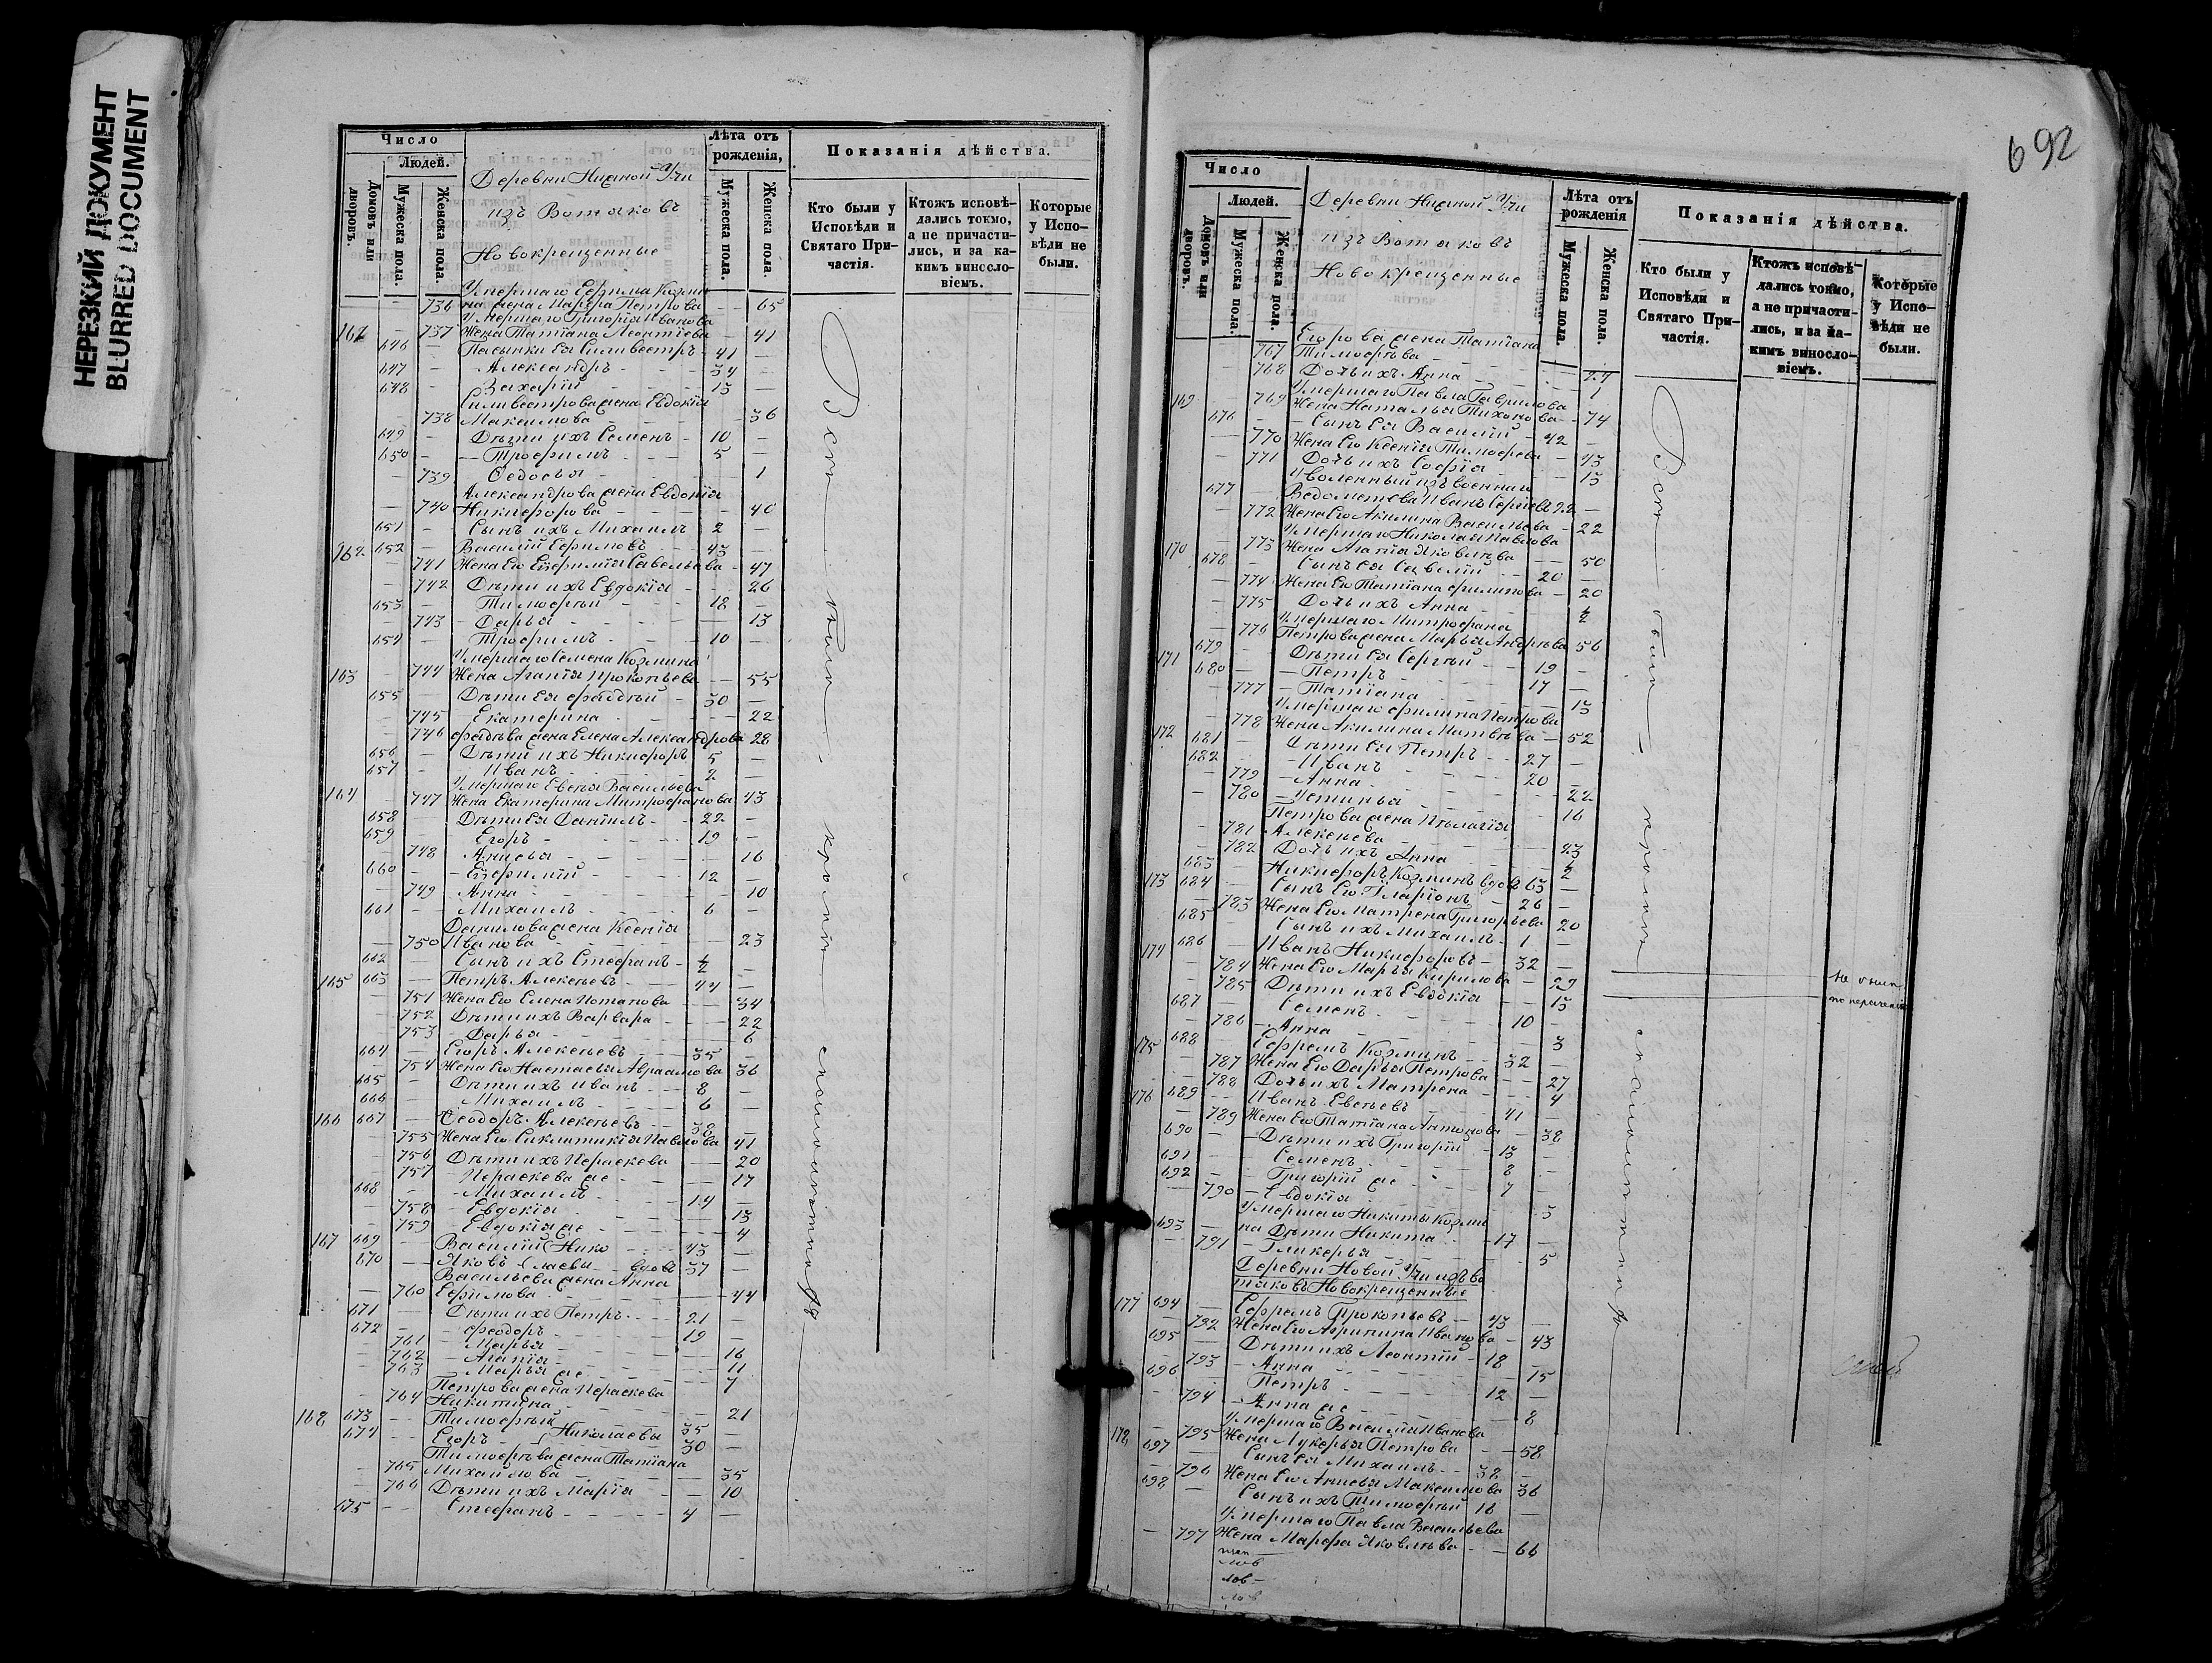 НЕРЕЗКИЙ ДОКУМЕНТ
BLURRED DOCUMENT
Число
Людей.
Домовъ или дворовъ.
Мужеска пола.
Женска пола.
Деревни Нижней Учи
изъ Вотяковъ
Новокрещенные
Лѣта отъ рожденія,
Мужеска пола.
Женска пола.
Показанія дѣйства.
Кто были у Исповѣди и Святаго Причастія.
Ктожъ исповѣдались токмо, а не причастились, и за какимъ винословіемъ.
Которые у Исповѣди не были.
Умершаго Ефрема Козми
736 на жена Марфа Петрова 65
Умершаго Григорія Иванова
161 737 Жена Татіана Леонтіева 41
646 Пасынки Ея Сильвестръ 41
647 Александръ 34
648 Захарій 13
Сильвестрова жена Евдокія
738 Максимова 36
649 Дѣти ихъ Семенъ 10
650 Трофимъ 5
739 Федосья 1
Александрова жена Евдокія
740 Никифорова 40
651 Сынъ ихъ Михаилъ 2
162 652 Василій Ефимовъ 43
741 Жена Его Евфимія Савельева 47
742 Дѣти ихъ Евдокія 26
653 Тимофей 18
743 Дарья 13
654 Трофимъ 10
Умершаго Семена Козмина
163 744 Жена Агапія Прокопьева 55
655 Дѣти Ея Фаддѣй 30
745 Екатерина 22
746 Фаддѣева жена Елена Александрова 28
656 Дѣти ихъ Никифоръ 5
657 Иванъ 2
Умершаго Евсѣя Васильева
164 747 Жена Екатерина Митрофанова 43
658 Дѣти Ея Даніилъ 22
659 Егоръ 19
748 Анисья 16
660 Евфимій 12
749 Анна 10
661 Михаилъ 6
Данилова жена Ксенія
750 Иванова 23
662 Сынъ ихъ Стефанъ ½
165 663 Петръ Алексѣевъ 44
751 Жена Его Елена Потапова 34
752 Дѣти ихъ Варвара 22
753 Дарья 6
664 Егоръ Алексѣевъ 35
754 Жена Его Настасья Авраамова 36
665 Дѣти ихъ Иванъ 8
666 Михаилъ 6
166 667 Ѳеодоръ Алексѣевъ 38
755 Жена Его Сиклитикія Павлова 41
756 Дѣти ихъ Пераскева 20
757 Пераскева же 17
668 Михаилъ 14
758 Евдокія 13
759 Евдокія же 4
167 669 Василій Нико 43
670 Яковъ лаевы вдовъ 37
Васильева жена Анна
760 Ефимова 44
671 Дѣти ихъ Петръ 21
672 Феодоръ 19
761 Марья 16
762 Агапія 11
763 Марья же 7
Петрова жена Пераскева
764 Никитина 21
168 673 Тимофей 35
674 Егоръ Николаевы 30
Тимофѣева жена Татіана
765 Михайлова 35
766 Дѣти ихъ Марія 10
675 Стефанъ 4
Всѣ были кромѣ
692
Число
Людей.
Домовъ или дворовъ.
Мужеска пола.
Женска пола.
Деревни Нижней Учи
изъ Вотяковъ
Новокрещенные
Лѣта отъ рожденія
Мужеска пола.
Женска пола.
Показанія дѣйства.
Кто были у Исповѣди и Святаго Причастія.
Ктожъ исповѣдались токмо, а не причастились, и за какимъ винословіемъ.
Которые у Исповѣди не были.
Егорова жена Татіана
767 Тимофѣева 27
768 Дочь ихъ Анна 1
Умершаго Павла Гаврилова
169 769 Жена Наталья Тихонова 74
676 Сынъ Ея Василій 42
770 Жена Его Ксенія Тимофѣева 43
771 Дочь ихъ Софія 13
Уволенный изъ военнаго
677 Ведомства Иванъ Сергѣевъ 22
772 Жена Его Акилина Васильева 22
Умершаго Николая Павлова
170 773 Жена Агапія Яковлева 50
678 Сынъ Ея Савелій 20
774 Жена Его Татіана Филипова 20
775 Дочь ихъ Анна ½
Умершаго Митрофана
776 Петрова жена Марья Андрѣева 56
171 679 Дѣти Ея Сергѣй 19
680 Петръ 17
777 Татіана 13
Умершаго Филипа Петрова
778 Жена Акилина Матвѣева 52
172 681 Дѣти Ея Петръ 27
682 Иванъ 20
779 Анна 22
780 Устинья 16
Петрова жена Пелагія
781 Алексѣева 23
782 Дочь ихъ Анна ½
173 683 Никифоръ Козминъ вдовъ 63
684 Сынъ Его Иларіонъ 26
783 Жена Его Матрена Григорьева 20
685 Сынъ ихъ Михаилъ 1
174 686 Иванъ Никифоровъ 32
784 Жена Его Марья Кирилова 29
785 Дѣти ихъ Евдокія 13
687 Семенъ 10
786 Анна 3
175 688 Ефремъ Козминъ 32
787 Жена Его Дарья Петрова 27
788 Дочь ихъ Матрена 4
176 689 Иванъ Евсѣевъ 41
789 Жена Его Татіана Антонова 38
690 Дѣти ихъ Григорій 13
691 Семенъ 8
692 Григорій же 7
790 Евдокія 3
Умершаго Никиты Козми
693 на Дѣти Никита 17
791 Гликерья 5
Деревни Новой Учи изъ Во
тяковъ Новокрещенные
177 694 Ефремъ Прокопьевъ 43
792 Жена Его Агрипина Иванова 43
695 Дѣти ихъ Леонтій 18
793 Анна 15
696 Петръ 12
794 Анна же 8
Умершаго Василья Иванова
178 795 Жена Лукерья Петрова 58
697 Сынъ Ея Михаилъ 38
796 Жена Его Анисья Максимова 36
698 Сынъ ихъ Тимофей 16
Умершаго Павла Васильева
797 Жена Марфа Яковлева 66
Всѣ были кромѣ
не были